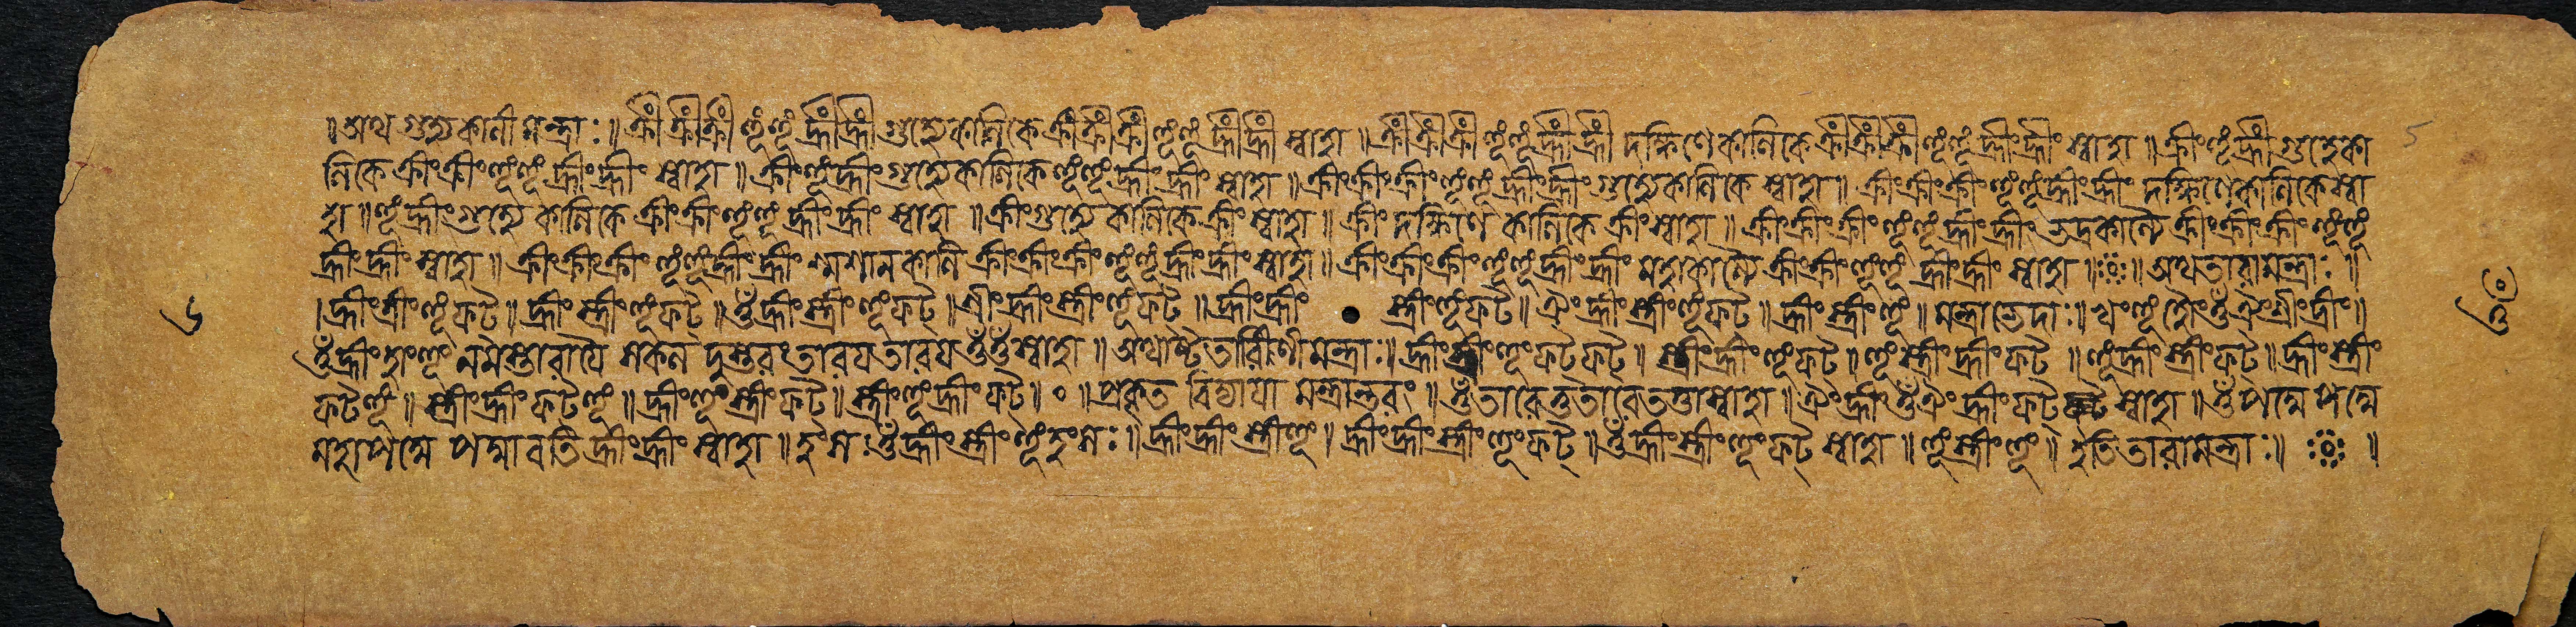 ॥ অথ গুহ্যকালী মন্ত্রাঃ ॥ ক্রীং ক্রীং ক্রীং হূং হূং হ্রীং হ্রীং গুহ্যেকালিকে ক্রীং ক্রীং ক্রীং হূং হূং হ্রীং হ্রীং স্বাহা ॥ ক্রীং ক্রীং ক্রীং হূং হূং হ্রীং হ্রীং দক্ষিণেকালিকে ক্রীং ক্রীং ক্রীং হূং হূং হ্রীং হ্রীং স্বাহা ॥ ক্রীং হূং হ্রীং গুহ্যেকা
লিকে ক্রীং ক্রীং হূং হূং হ্রীং হ্রীং স্বাহা ॥ ক্রীং হূং হ্রীং গুহ্যেকালিকে হূং হূং হ্রীং হ্রীং স্বাহা ॥ ক্রীং ক্রীং ক্রীং হূং হূং হ্রীং হ্রীং গুহ্যেকালিকে স্বাহা ॥ ক্রীং ক্রীং ক্রীং হূং হূং হ্রীং হ্রীং দক্ষিণেকালিকে স্বা
হা ॥ হূং হ্রীং গুহ্যে কালিকে ক্রীং ক্রীং হূং হূং হ্রীং হ্রীং স্বাহা ॥ ক্রীং গুহ্যে কালিকে ক্রীং স্বাহা ॥ ক্রীং দক্ষিণে কালিকে ক্রীং স্বাহা ॥ ক্রীং ক্রীং ক্রীং হূং হূং হ্রীং হ্রীং ভদ্রকাল্যৈ ক্রীং ক্রীং ক্রীং হূং হূং
হ্রীং হ্রীং স্বাহা ॥ ক্রীং ক্রীং ক্রীং হূং হূং হ্রীং হ্রীং শ্মশানকালি ক্রীং ক্রীং ক্রীং হূং হূং হ্রীং হ্রীং স্বাহা ॥ ক্রীং ক্রীং ক্রীং হূং হূং হ্রীং হ্রীং মহাকাল্যৈ ক্রীং ক্রীং হূং হূং হ্রীং হ্রীং স্বাহা ॥ ॥ অথ তারামন্ত্রাঃ ॥
৬ । হ্রীং ত্রীং হূং ফট্ ॥ হ্রীং স্ত্রীং হূং ফট্ ॥ ওঁ হ্রীং স্ত্রীং হূং ফট্ ॥ শ্রীং হ্রীং স্ত্রীং হূং ফট্ ॥ হ্রীং হ্রীং স্ত্রীং হূং ফট্ ॥ ঐং হ্রীং স্ত্রীং হূং ফট্ ॥ হ্রীং স্ত্রীং হূং ॥ মন্ত্রাভেদাঃ ॥ ওঁ ঐং শ্রীং হ্রীং ॥
ওঁ হ্রীং হাং হূং নমস্তারায়ৈ সকল দুস্তরং তারয় তারয় ওঁ ওঁ স্বাহা ॥ অথাষ্টৈতারিণীমন্ত্রাঃ ॥ হ্রীং স্ত্রীং হূং ফট্ ফট্ ॥ স্ত্রীং হ্রীং হূং ফট্ ॥ হূং স্ত্রীং হ্রীং ফট্ ॥ হূং হ্রীং স্ত্রীং ফট্ ॥ হ্রীং স্ত্রীং
ফট্ হূং ॥ স্ত্রীং হ্রীং ফট্ হূং ॥ হ্রীং হূং স্ত্রীং ফট্ ॥ স্ত্রীং হূং হ্রীং ফট্ ॥ ০ ॥ প্রকৃত বিদ্যায়া মন্ত্রান্তরং ॥ ওঁ তারেতুতারেতত্তাস্বাহা ॥ ঐং হ্রীং ওঁ ঐং হ্রীং ফট্ স্বাহা ॥ ওঁ পদ্মে পদ্মে
মহাপদ্মে পদ্মাবতি হ্রীং হ্রীং স্বাহা ॥ হংসঃ ওঁ হ্রীং স্ত্রীং হূং হংসঃ ॥ হ্রীং হ্রীং স্ত্রীং হূং । হ্রীং হ্রীং স্ত্রীং হূং ফট্ ॥ ওঁ হ্রীং স্ত্রীং হূং ফট্ স্বাহা ॥ হূং স্ত্রীং হূং ॥ ইতি তারামন্ত্রাঃ ॥ ॥
5